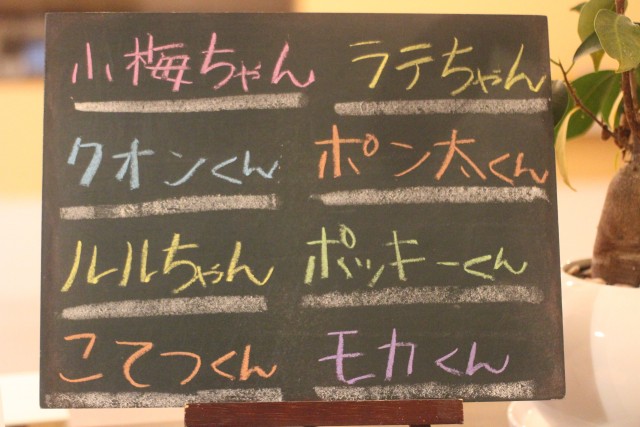 小梅ちゃん
ラテちゃん
クオンくん
ポン太くん
ルルちゃん
ポッキーくん
こてつくん
モカくん